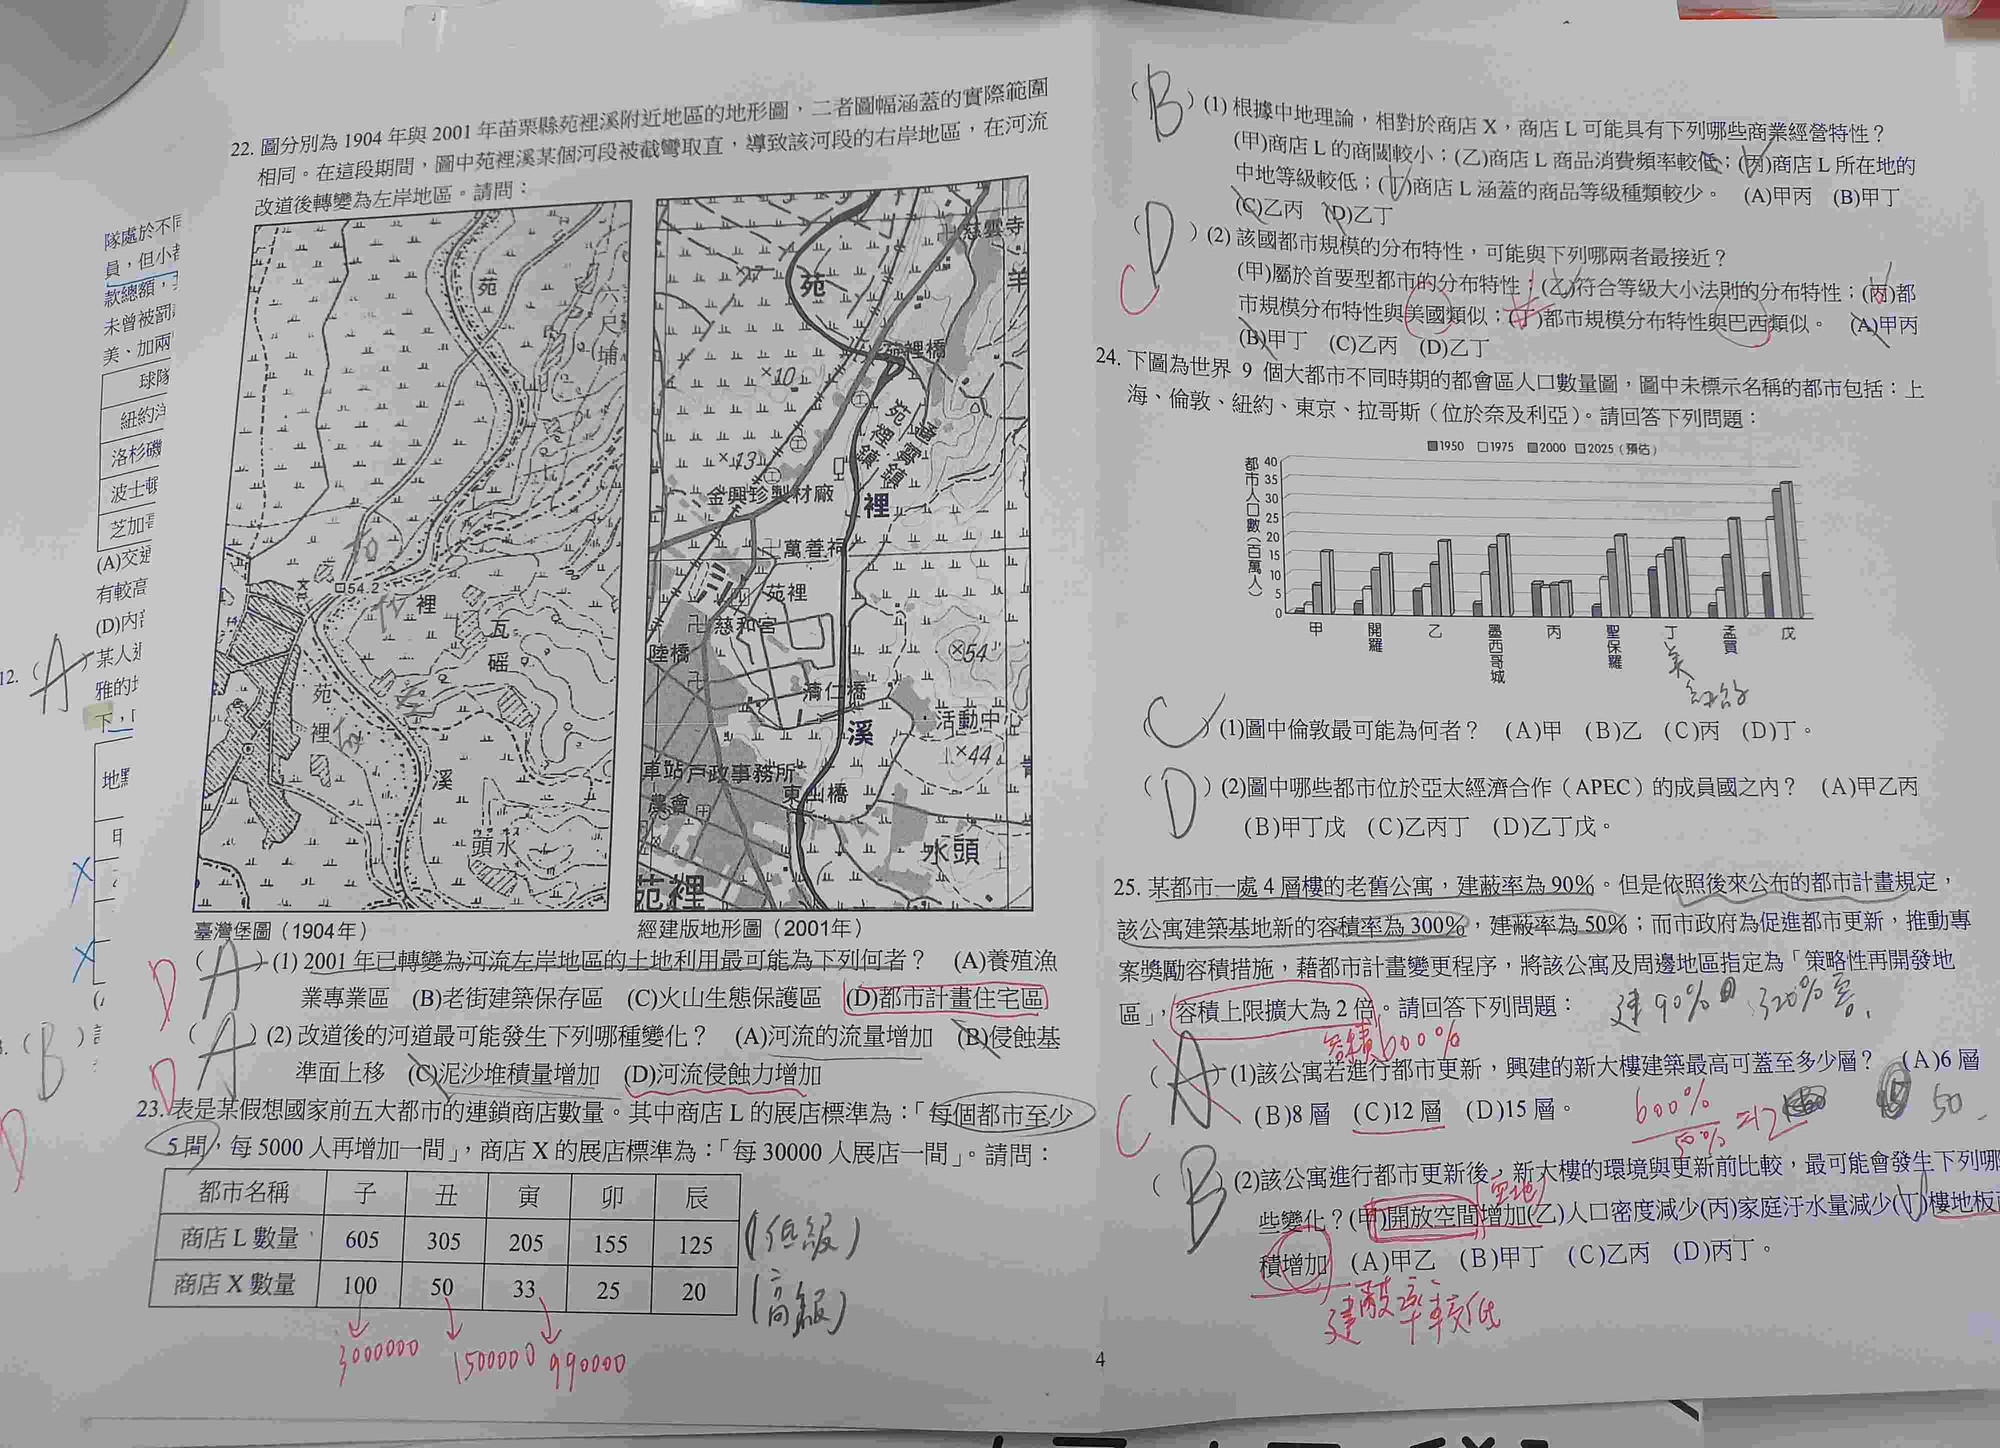 隊處於不同
員，但小
款總額，
未曾被罰
美、加兩
球隊
紐約
洛杉磯
波士頓
芝加
(A)交通
有較高
(D)內
12. (A)某人
雅的地
下，
地
(B)
D
22. 圖分別為 1904 年與 2001 年苗栗縣苑裡溪附近地區的地形圖，二者圖幅涵蓋的實際範圍
相同。在這段期間，圖中苑裡溪某個河段被截彎取直，導致該河段的右岸地區，在河流
改道後轉變為左岸地區。請問：
苑
六尺埔
54.2
裡
瓦磘
苑裡
溪
頭水
臺灣堡圖（1904年）
慈雲寺
羊
17
苑
苑裡橋
×10
苑裡鎮
通霄鎮
×13
金興珍製材廠
裡
萬善祠
苑裡
慈和宮
陸橋
×54
濟仁橋
溪
活動中心
×44
車站
戶政事務所
農會
東山橋
水頭
苑裡
經建版地形圖（2001年）
D (A) (1) 2001 年已轉變為河流左岸地區的土地利用最可能為下列何者？ (A)養殖漁
業專業區 (B)老街建築保存區 (C)火山生態保護區 (D)都市計畫住宅區
D (A) (2) 改道後的河道最可能發生下列哪種變化？ (A)河流的流量增加 (B)侵蝕基
準面上移 (C)泥沙堆積量增加 (D)河流侵蝕力增加
23. 表是某假想國家前五大都市的連鎖商店數量。其中商店 L 的展店標準為：「每個都市至少
5 間，每 5000 人再增加一間」，商店 X 的展店標準為：「每 30000 人展店一間」。請問：
都市名稱 子 丑 寅 卯 辰
商店 L 數量 605 305 205 155 125 (低級)
商店 X 數量 100 50 33 25 20 (高級)
3000000 1500000 990000
(B) (1) 根據中地理論，相對於商店 X，商店 L 可能具有下列哪些商業經營特性？
(甲)商店 L 的商閾較小；(乙)商店 L 商品消費頻率較低；(丙)商店 L 所在地的
中地等級較低；(丁)商店 L 涵蓋的商品等級種類較少。 (A)甲丙 (B)甲丁
(C)乙丙 (D)乙丁
C (D) (2) 該國都市規模的分布特性，可能與下列哪兩者最接近？
(甲)屬於首要型都市的分布特性；(乙)符合等級大小法則的分布特性；(丙)都
市規模分布特性與美國類似；(丁)都市規模分布特性與巴西類似。 (A)甲丙
(B)甲丁 (C)乙丙 (D)乙丁
24. 下圖為世界 9 個大都市不同時期的都會區人口數量圖，圖中未標示名稱的都市包括：上
海、倫敦、紐約、東京、拉哥斯（位於奈及利亞）。請回答下列問題：
1950 1975 2000 2025（預估）
都市人口數（百萬人）
40
35
30
25
20
15
10
5
0
甲 開羅 乙 墨西哥城 丙 聖保羅 丁 孟買 戊
美
紐約
(C) (1)圖中倫敦最可能為何者？ (A)甲 (B)乙 (C)丙 (D)丁。
(D) (2)圖中哪些都市位於亞太經濟合作（APEC）的成員國之內？ (A)甲乙丙
(B)甲丁戊 (C)乙丙丁 (D)乙丁戊。
25. 某都市一處 4 層樓的老舊公寓，建蔽率為 90%。但是依照後來公布的都市計畫規定，
該公寓建築基地新的容積率為 300%，建蔽率為 50%；而市政府為促進都市更新，推動專
案獎勵容積措施，藉都市計畫變更程序，將該公寓及周邊地區指定為「策略性再開發地
區」，容積上限擴大為 2 倍。請回答下列問題：
容積600%
C (A) (1)該公寓若進行都市更新，興建的新大樓建築最高可蓋至多少層？ (A)6 層
(B)8 層 (C)12 層 (D)15 層。
600%
50% =12
50
(B) (2)該公寓進行都市更新後，新大樓的環境與更新前比較，最可能會發生下列哪
空地
些變化？(甲)開放空間增加(乙)人口密度減少(丙)家庭汙水量減少(丁)樓地板
積增加 (A)甲乙 (B)甲丁 (C)乙丙 (D)丙丁。
建蔽率較低
4